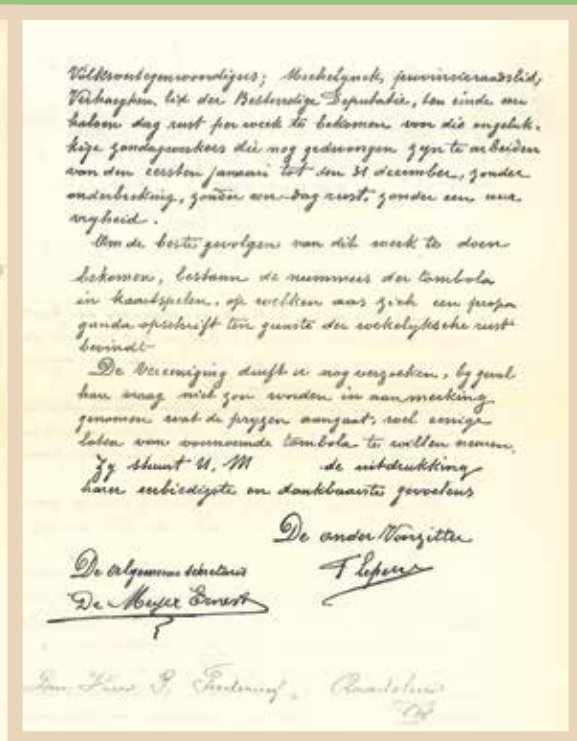 Volksvertegenwoordigers; Mechelynck, provincieraadslid,
Verhaeghen, lid der Bestendige Deputatie, ten einde een
halven dag rust per week te bekomen voor die ongeluk-
kige zondagwerkers die nog gedwongen zyn te arbeiden
van den eersten januari tot den 31 december, zonder
onderbreking, zonder een dag rust, zonder een uur
vryheid.
Om de beste gevolgen van dit werk te doen
bekomen, bestaan de nummers der tombola
in kaartspelen, op welken aas zich een propa
ganda opschrift ten gunste der wekelyksche rust
bevindt
De Vereeniging durft u nog verzoeken, by geval
hare vraag niet zou worden in aanmerking
genomen wat de pryzen aangaat, wel eenige
loten van voornoemde tombola te willen nemen.
Zy stuurt U, M de uitdrukking
harer eerbiedigste en dankbaarste gevoelens
De onder Voorzitter
De algemeene secretaris
De Meyer Ernest
Den Heer